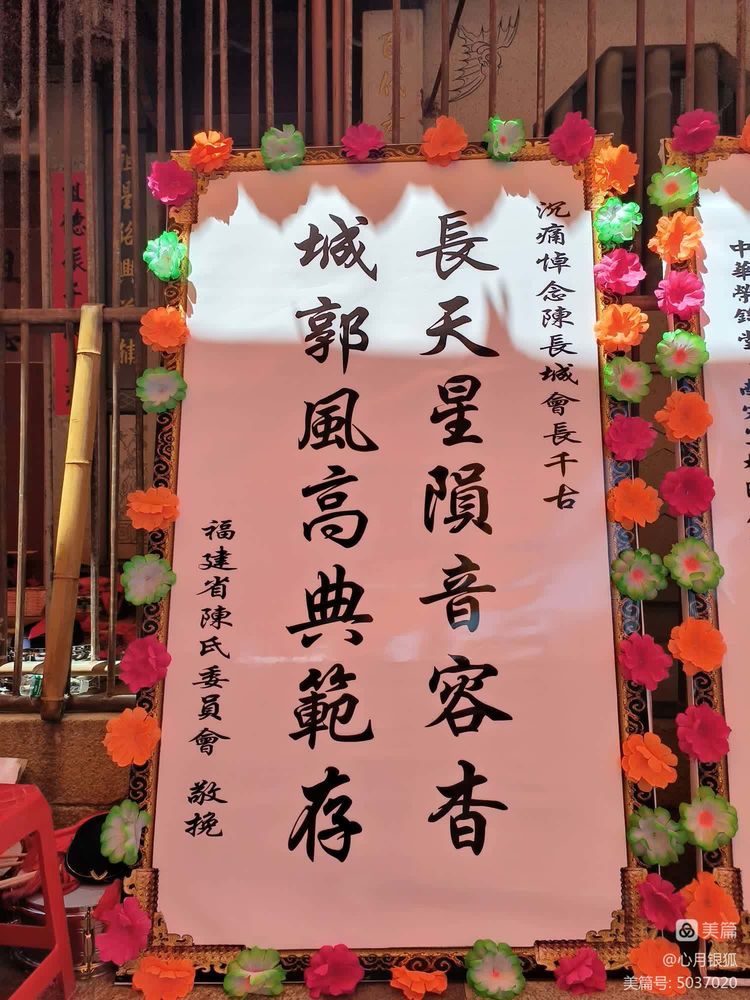 沉痛悼念陳長城會長千古
長天星隕音容杳
城郭風高典範存
福建省陳氏委員會 敬挽
中華
美篇
@心月银狐
美篇号: 5037020